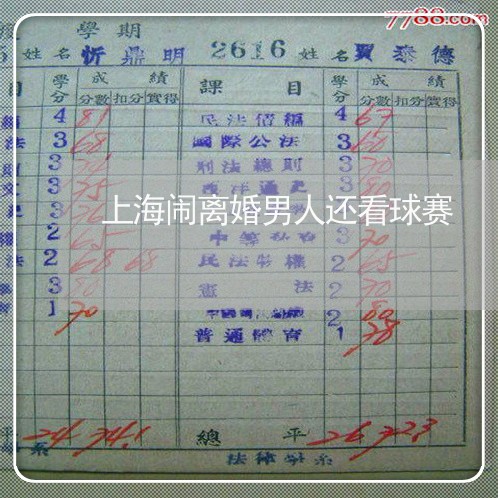 7788.com
學期
5 姓名 忻鼎明 2616 姓名 賈泰德
目 學分 成績 課目 學分 成績
分數 扣分 實得 分數 扣分 實得
4 81 民法債編 4 67
法 3 68 國際公法 3 60
3 刑法總則 3 70
3 75 西洋通史 3 80
上海闹离婚男人还看球赛
2 65 3 70
法 2 68 68 民法物權 2 65
3 80 憲法 2 70
1 70 2 80
普通體育 1 78
平 24 74.1 總平 26 72.3
系 法律學系